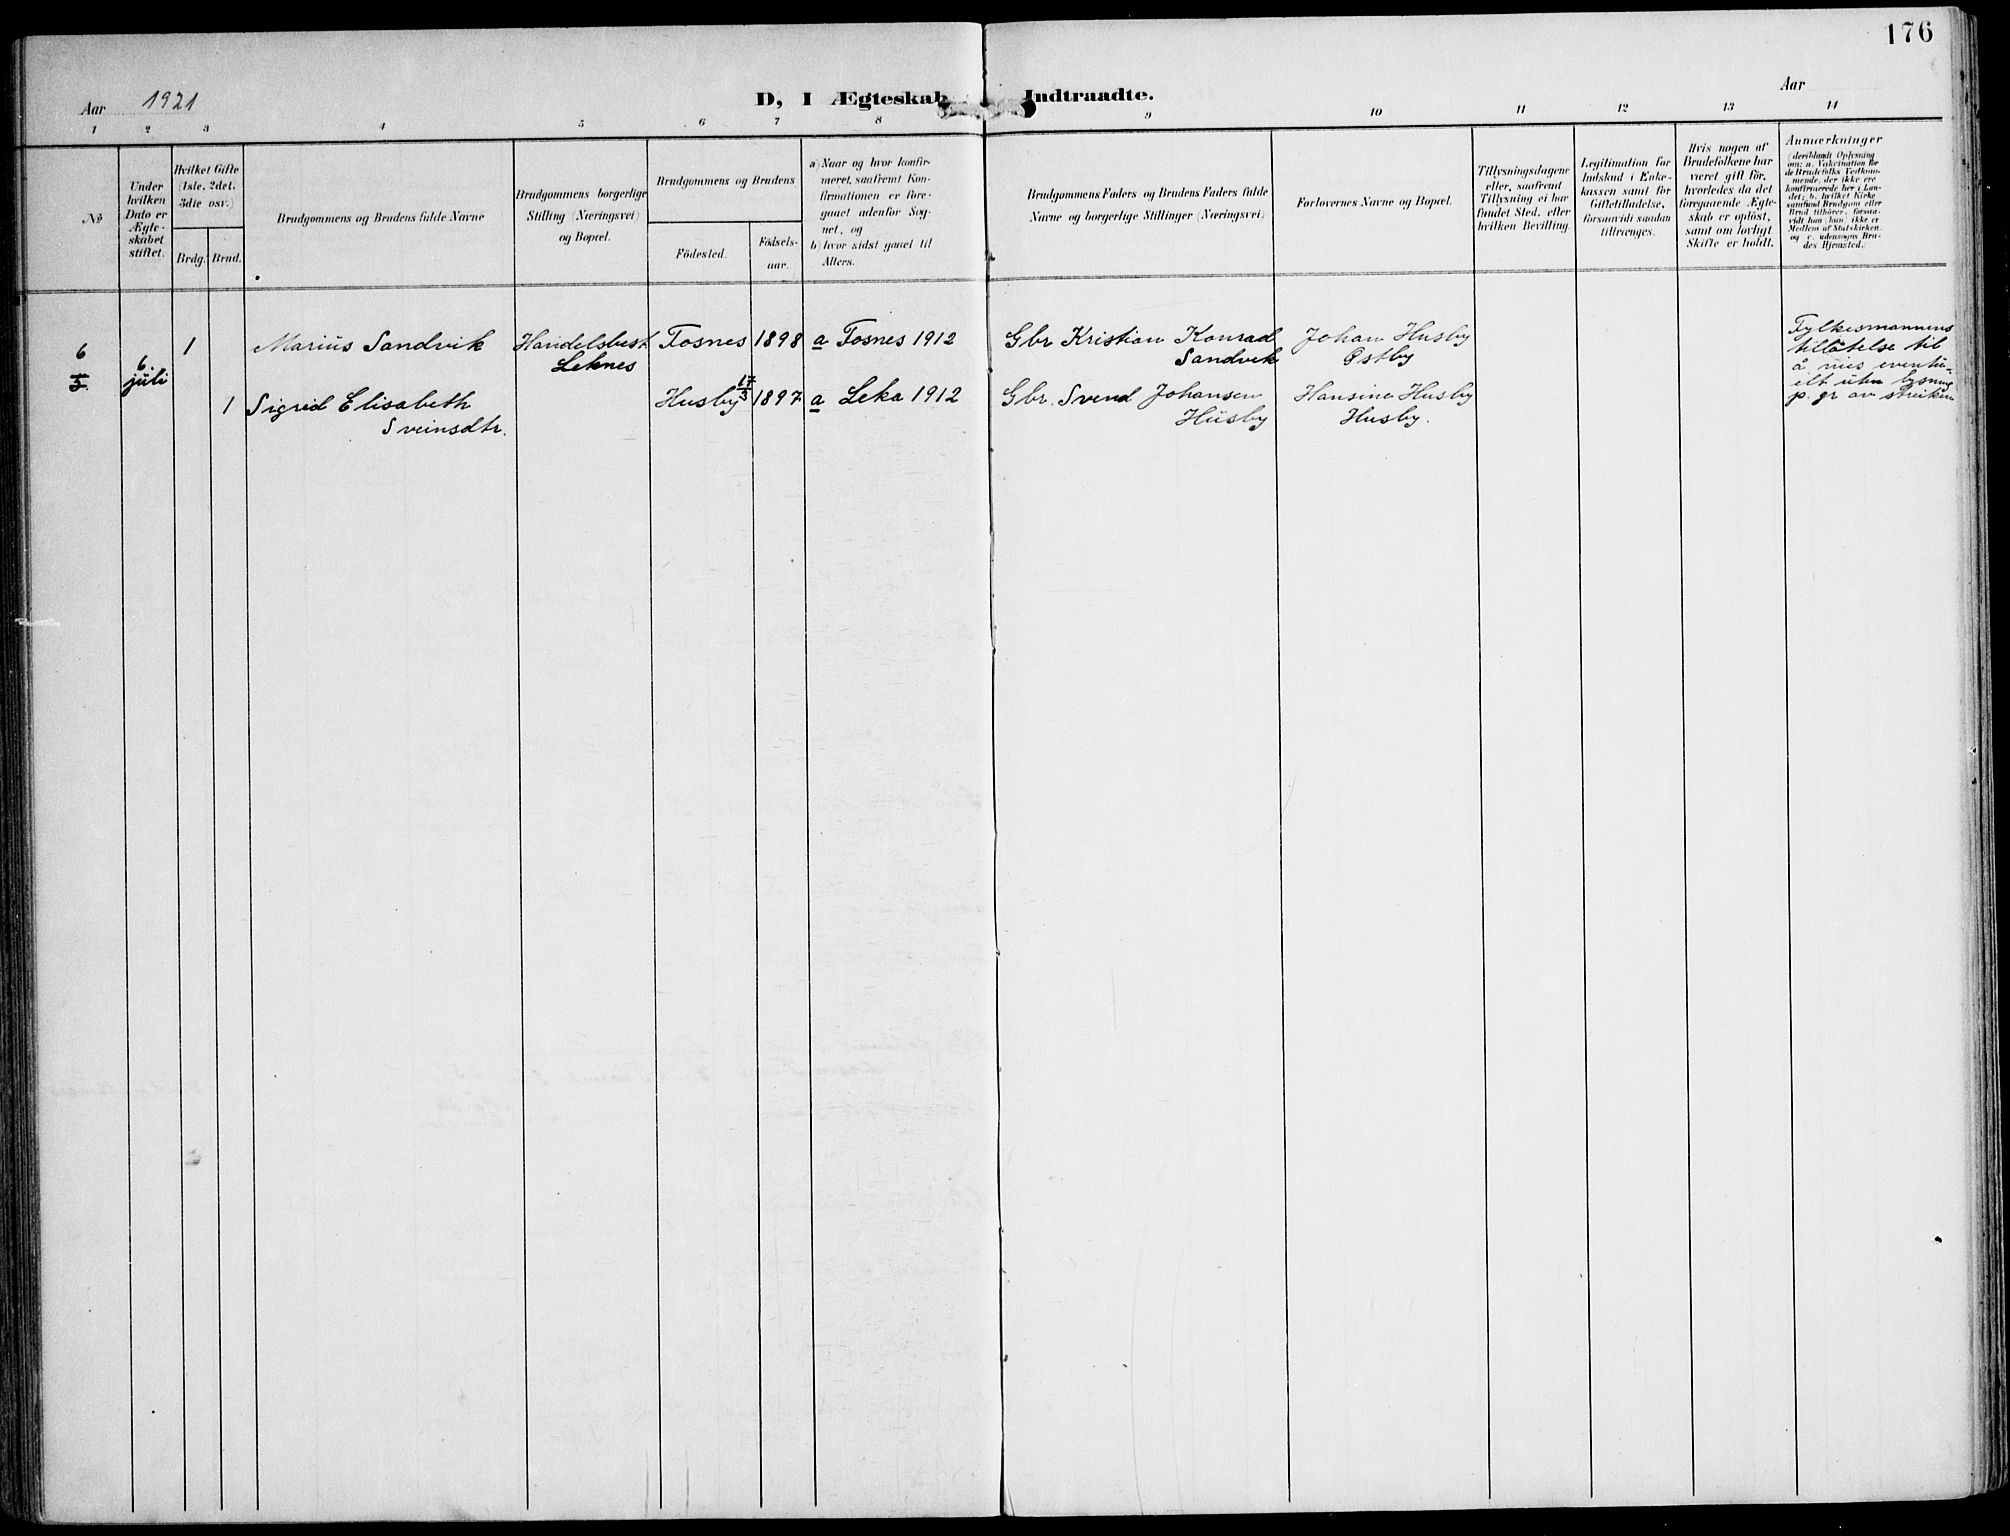 176
Aar 1921
D, I Ægteskab Indtraadte.
Aar
1 2 3 4 5 6 7 8 9 10 11 12 13 14
№
Under
hvilken
Dato er
Ægte-
skabet
stiftet.
Hvilket Gifte
(1ste, 2det,
3die osv.)
Brdg. Brud.
Brudgommens og Brudens fulde Navne
Brudgommens borgerlige
Stilling (Næringsvei)
og Bopæl.
Brudgommens og Brudens
Födested.
Födsels-
aar.
a) Naar og hvor konfir-
meret, saafremt Kon-
firmationen er fore-
gaaet udenfor Sog-
net, og
b) hvor sidst gaaet til
Alters.
Brudgommens Faders og Brudens Faders fulde
Navne og borgerlige Stillinger (Næringsvei)
Forlovernes Navne og Bopæl.
Tillysningsdagene
eller, saafremt
Tillysning ei har
fundet Sted, efter
hvilken Bevilling.
Legitimation for
Indskud i Enke-
kassen samt for
Giftetilladelse,
forsaavidt saadan
tiltrænges.
Hvis nogen af
Brudefolkene har
været gift för,
hvorledes da det
foregaaende Ægte-
skab er oplöst,
samt om lovligt
Skifte er holdt.
Anmærkninger
(deriblandt Oplysning
om: a. Vakcination for
de Brudefolks Vedkom-
mende, der ikke ere
konfirmerede her i Lan-
det; b. hvilket Kirke-
samfund Brudgom eller
Brud tilhörer, forsaa-
vidt han (hun) ikke er
Medlem af Statskirken.
og c. udensogns Bru-
des Hjemsted.)
6
5.
6.
juli
1 Marius Sandvik Handelsbest. Fosnes 1898 a Fosnes 1912 Gbr Kristian Konrad Johan Husby
Leknes Sandvik Østby
1 Sigrid Elisabeth Husby 17/3 1897 a Leka 1912 Gbr. Svend Johansen Hansine Husby
Sveinsdtr. Husby Husby.
Fylkesmannens
tillåtelse til
å vies eventu-
elt uten lysning
p. gr av streiken